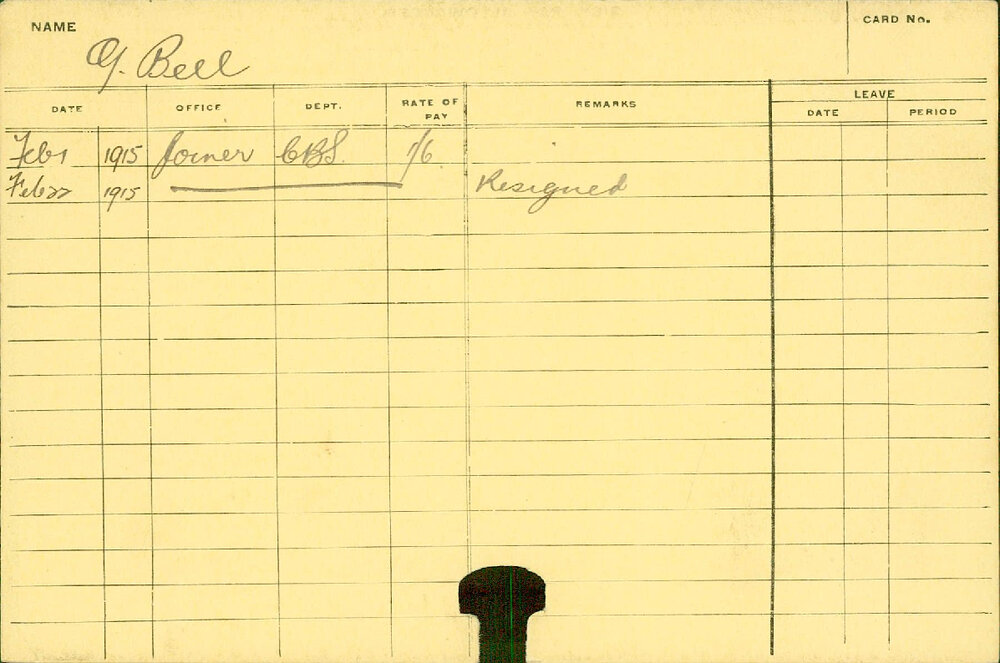 NAME
CARD No.
G. Bell
DATE OFFICE DEPT. RATE OF PAY REMARKS LEAVE
DATE PERIOD
Feb 1 1915 Joiner CBS. 1/6
Feb 22 1915 Resigned